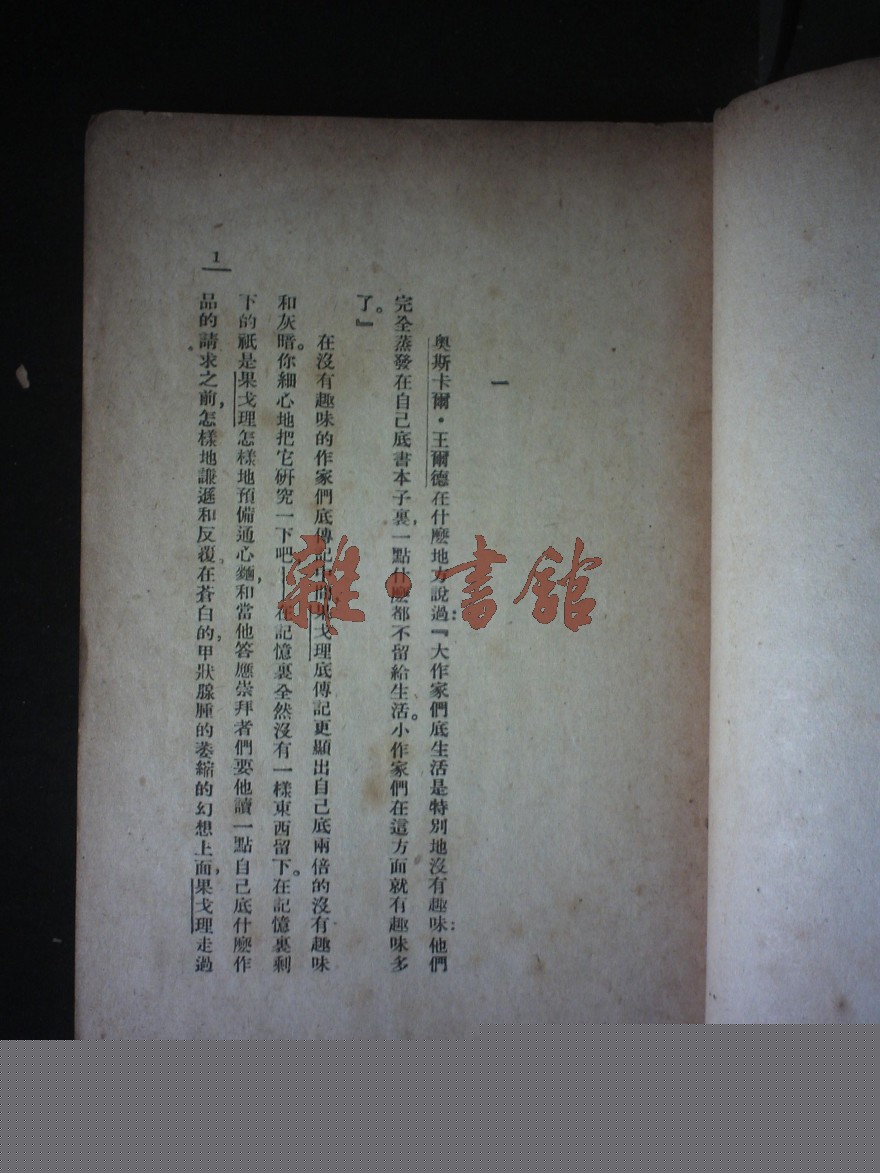 一
奧斯卡爾·王爾德在什麼地方說過:『大作家們底生活是特別地沒有趣味:他們
完全蒸發在自己底書本子裏,一點什麼都不留給生活。小作家們在這方面就有趣味多
了。』
在沒有趣味的作家們底傳記中間,果戈理底傳記更顯出自己底兩倍的沒有趣味
和灰暗。你細心地把它研究一下吧,—在記憶裏全然沒有一樣東西留下。在記憶裏剩
下的祇是果戈理怎樣地預備通心麵,和當他答應崇拜者們要他讀一點自己底什麼作
品的請求之前,怎樣地謙遜和反覆。在蒼白的,甲狀腺腫的萎縮的幻想上面,果戈理走過
1
雜·書館